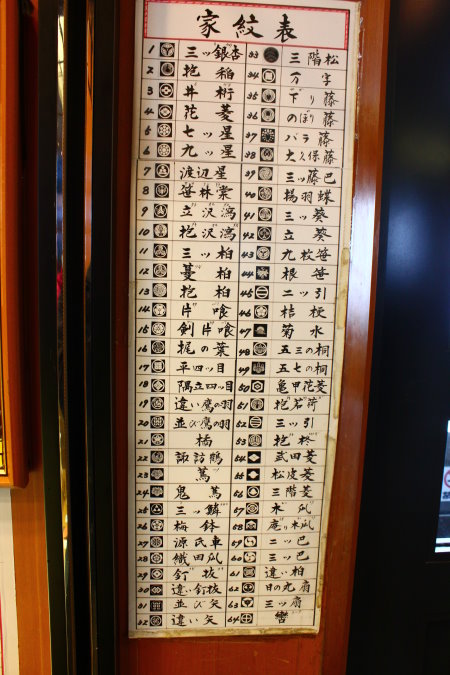 家紋表
1 三ッ銀杏
2 抱稲
3 井桁
4 花菱
5 七ッ星
6 九ッ星
7 渡辺星
8 笹
9 立沢瀉
10 抱沢瀉
11 三ッ柏
12 蔓柏
13 抱柏
14 片喰
15 剣片喰
16 梶の葉
17 平四ッ目
18 隅立四ッ目
19 違い鷹の羽
20 並び鷹の羽
21 橘
22 諏訪
23 蔦
24 鬼蔦
25 三ッ鱗
26 梅鉢
27 源氏車
28 織田瓜
29 釘抜
30 違い釘抜
31 並び矢
32 違い矢
33 三階松
34 万字
35 下り藤
36 のぼり藤
37 バラ藤
38 大久保藤
39 三ッ藤巴
40 揚羽蝶
41 三ッ葵
42 立葵
43 九枚笹
44 根笹
45 二ッ引
46 桔梗
47 菊水
48 五三の桐
49 五七の桐
50 亀甲花菱
51 抱茗荷
52 三ッ引
53 抱柊
54 武田菱
55 松皮菱
56 三階菱
57 木瓜
58 庵り木瓜
59 二ッ巴
60 三ッ巴
61 違い柏
62 日の丸扇
63 三ッ扇
64 轡